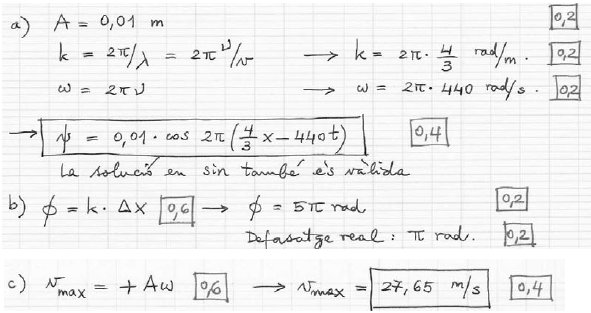 a) A = 0,01 m [0,2]
k = 2π/λ = 2π ν/v → k = 2π · 4/3 rad/m. [0,2]
ω = 2πν → ω = 2π · 440 rad/s. [0,2]
→ ψ = 0,01 · cos 2π (4/3 x – 440t) [0,4]
La solució en sin també és vàlida
b) φ = k · Δx [0,6] → φ = 5π rad [0,2]
Defasatge real : π rad. [0,2]
c) v max = + Aω [0,6] → v max = 27,65 m/s [0,4]